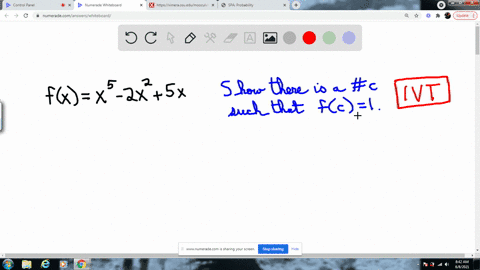 Control Panel
Numerade Whiteboard
SPA: Probability
numerade.com/answers/whiteboard/
f(x) = x⁵-2x²+5x
Show there is a #c
such that f(c)=1.
IVT
www.numerade.com is sharing your screen.
Stop sharing
Hide
8:42 AM
6/4/2021